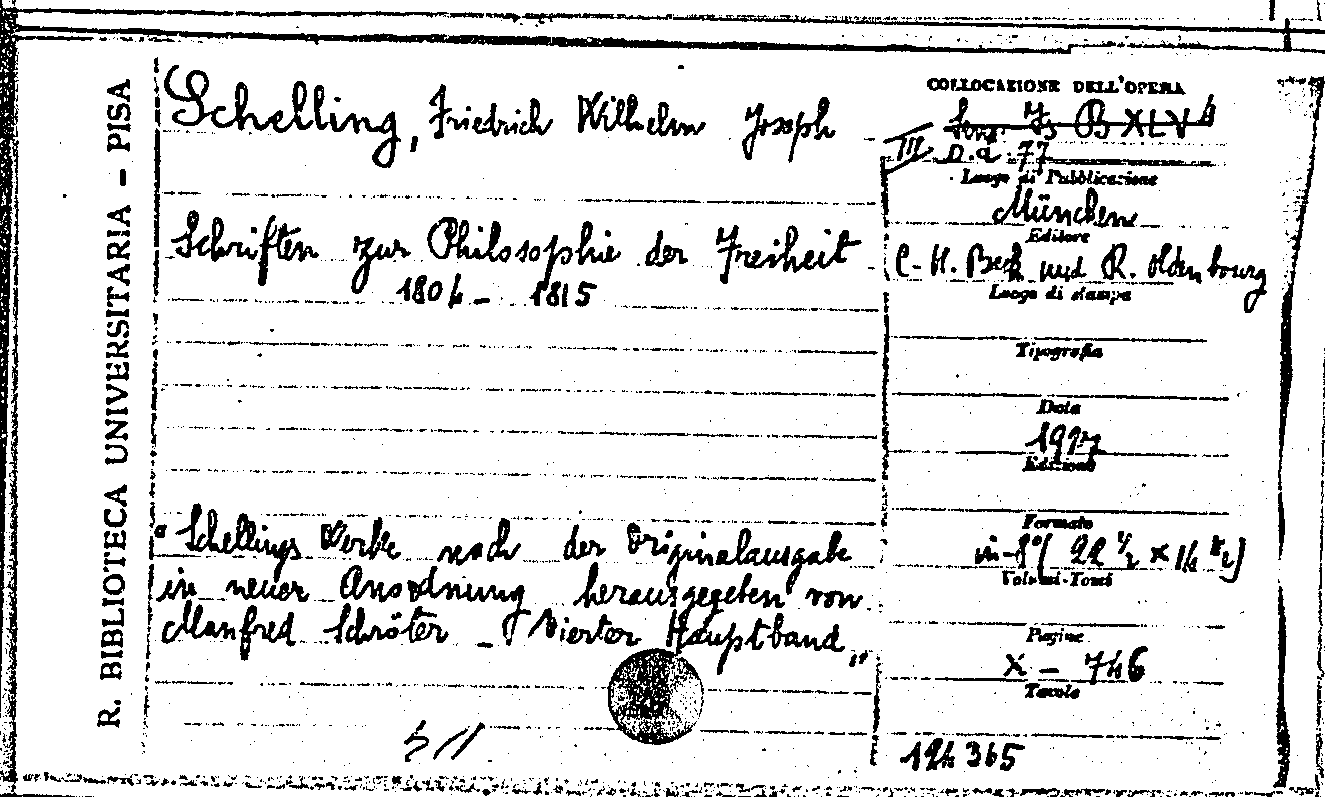 R. BIBLIOTECA UNIVERSITARIA - PISA
Schelling, Friedrich Wilhelm Joseph
Schriften zur Philosophie der Freiheit
1804 - 1815
"Schellings Werke nach der Originalausgabe
in neuer Anordnung herausgegeben von
Manfred Schröter - Vierter Hauptband„
COLLOCAZIONE DELL'OPERA
B XLV 4
III D.a. 77
Luogo di Pubblicazione
München
Editore
C. H. Beck und R. Oldenbourg
Luogo di stampa
Tipografia
Data
1927
Edizione
Formato
in-8° (22 1/2 x 14 1/2)
Volumi-Tomi
Pagine
X - 746
Tavole
124365